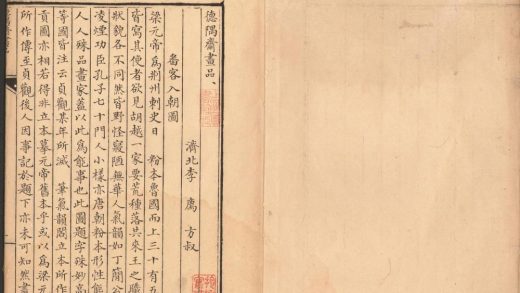 德隅齋畫品、
濟北李 廌 方叔
蕃客入朝圖
梁元帝為荊州刺史日 粉本魯國而上三十有五
皆寫其使者欲見胡越一家要荒種落共來王之職
狀貌各不同然皆野怪寢陋無華人氣韻如丁簡公
凌煙功臣孔子七十門人小樣亦唐朝粉本形性態
人人殊品畫家蓋以此為能事也此圖題字殊妙高
等國皆注云貞觀某年所滅 筆氣韻閻立本所作
貢圖亦相若得非立本摹元帝舊本乎或以為梁元
所作傳至貞觀後人因事記於題下亦未可知然畫